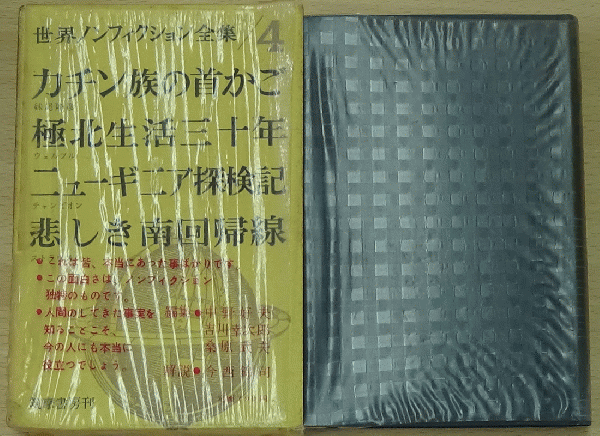 世界ノンフィクション全集/4
カチン族の首かご
極北生活三十年
ウェルツル
ニューギニア探検記
チャンピオン
悲しき南回帰線
●これは皆、本当にあった事ばかりです。
●この面白さは、ノンフィクション
独特のものです。
●人間のしてきた事実を
知ることこそ、
今の人にも本当に
役立つでしょう。
編集●中野好夫
吉川幸次郎
桑原武夫
解説●今西錦司
筑摩書房刊